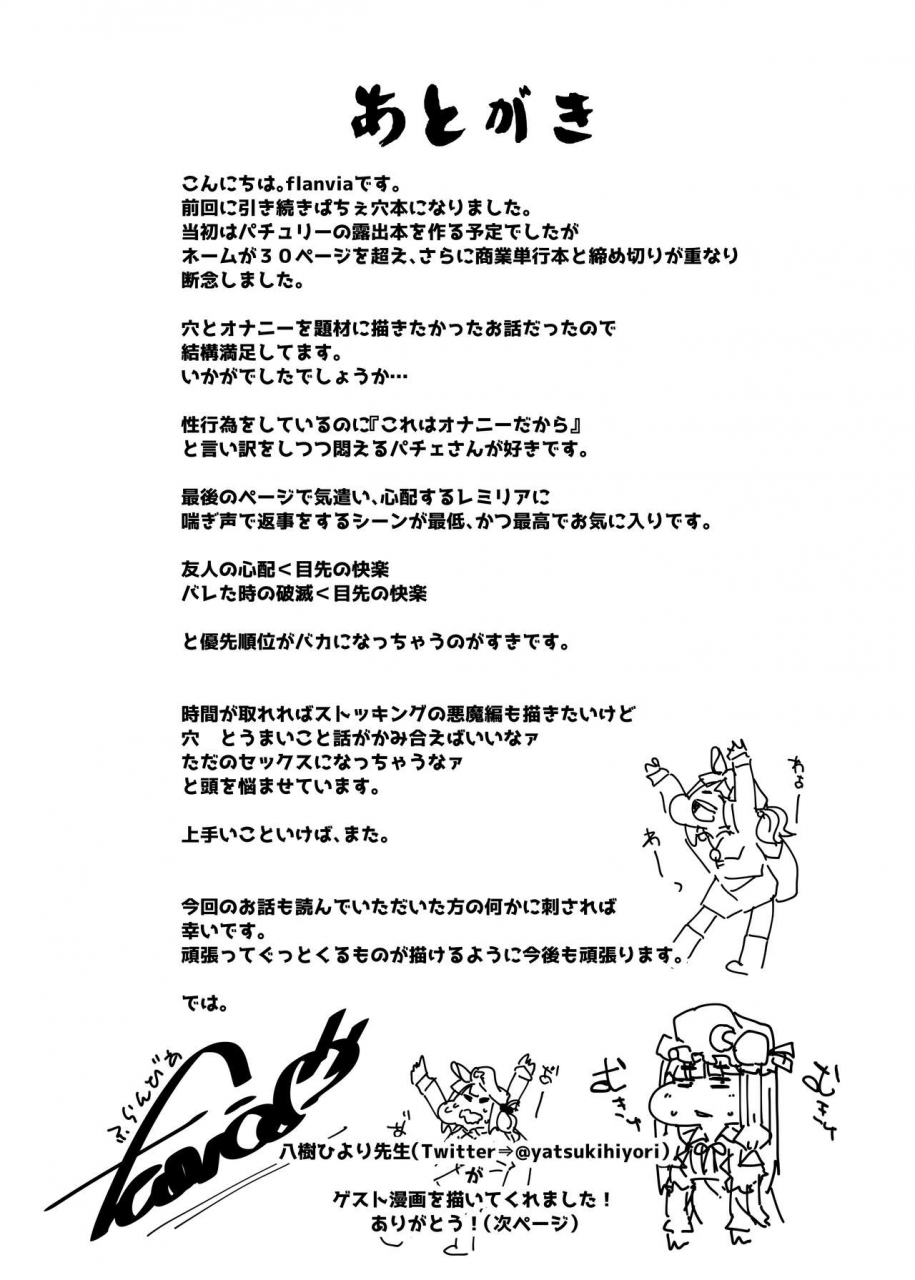 あとがき
こんにちは。flanviaです。
前回に引き続きぱちぇ穴本になりました。
当初はパチュリーの露出本を作る予定でしたが
ネームが３０ページを超え、さらに商業単行本と締め切りが重なり
断念しました。
穴とオナニーを題材に描きたかったお話だったので
結構満足してます。
いかがでしたでしょうか…
性行為をしているのに『これはオナニーだから』
と言い訳をしつつ悶えるパチェさんが好きです。
最後のページで気遣い、心配するレミリアに
喘ぎ声で返事をするシーンが最低、かつ最高でお気に入りです。
友人の心配＜目先の快楽
バレた時の破滅＜目先の快楽
と優先順位がバカになっちゃうのがすきです。
時間が取れればストッキングの悪魔編も描きたいけど
穴　とうまいこと話がかみ合えばいいなァ
ただのセックスになっちゃうなァ
と頭を悩ませています。
上手いこといけば、また。
わぁー
わーっ
今回のお話も読んでいただいた方の何かに刺されば
幸いです。
頑張ってぐっとくるものが描けるように今後も頑張ります。
では。
ふらんびあ
むきっ
むきっ
八樹ひより先生（Twitter⇒@yatsukihiyori）
が
ゲスト漫画を描いてくれました！
ありがとう！（次ページ）